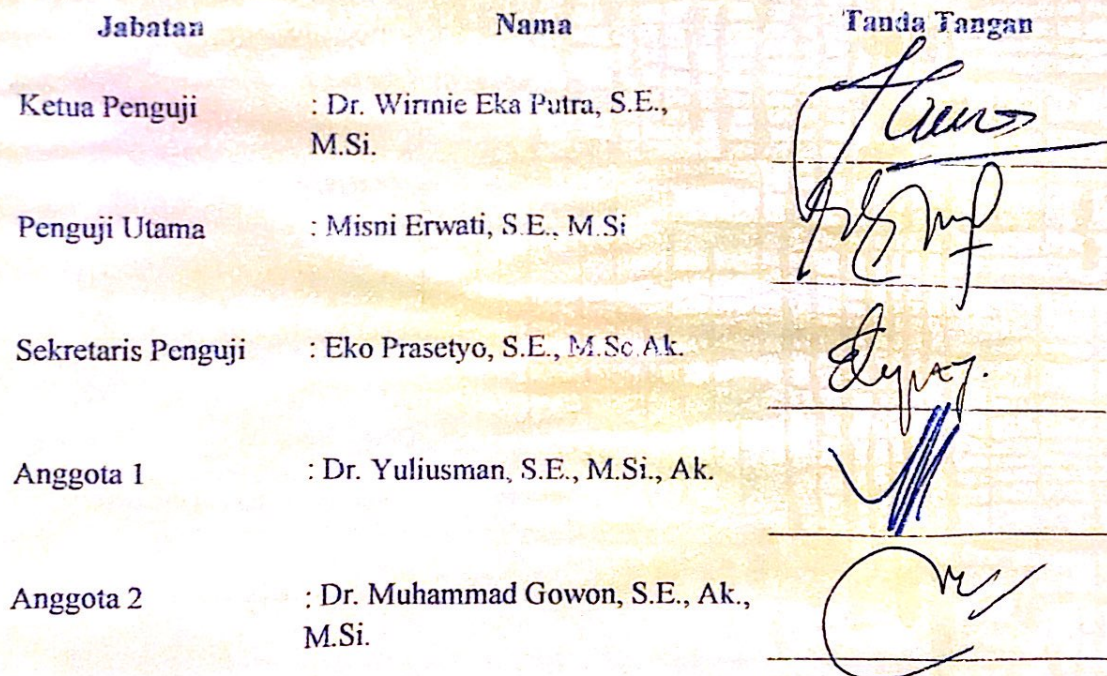 Jabatan Nama Tanda Tangan
Ketua Penguji : Dr. Wirmie Eka Putra, S.E.,
M.Si.
Penguji Utama : Misni Erwati, S.E., M.Si
Sekretaris Penguji : Eko Prasetyo, S.E., M.Sc.Ak.
Anggota 1 : Dr. Yuliusman, S.E., M.Si., Ak.
Anggota 2 : Dr. Muhammad Gowon, S.E., Ak.,
M.Si.